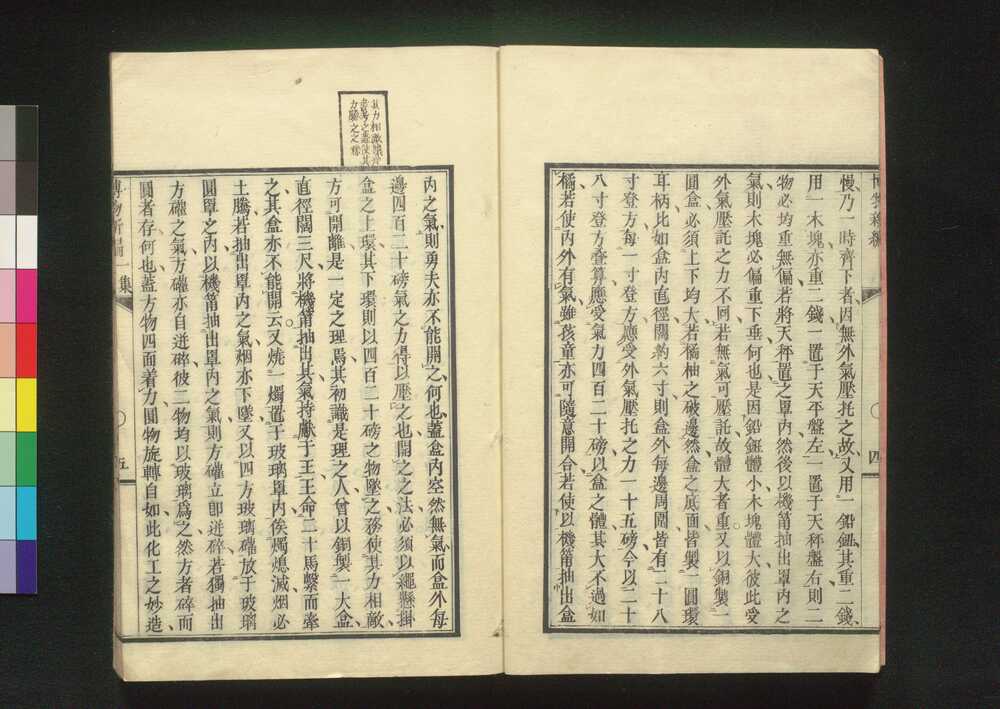 博物新編
四
慢乃一時齊下者因無外氣壓托之故又用一鉛鈕其重二錢
用一木塊亦重二錢一置于天平盤左一置于天秤盤右則二
物必均重無偏若將天秤置之罩內然後以機筩抽出罩內之
氣則木塊必偏重下垂何也是因鉛鈕體小木塊體大彼此受
外氣壓託之力不同若無氣可壓託故體大者重又以銅製一
圓盒必須上下均大若橘柚之破邊然盒之底面皆製一圓環
耳柄比如盒內直徑闊約六寸則盒外每邊周圍皆有二十八
寸登方每一寸登方應受外氣壓托之力一十五磅今以二十
八寸登方叠算應受氣力四百二十磅以盒之體其大不過如
橘若使內外有氣雖孩童亦可隨意開合若使以機筩抽出盒
內之氣則勇夫亦不能開之何也蓋盒內空然無氣而盒外每
邊四百二十磅氣之力得以壓之也開之之法必須以繩懸掛
盒之上環其下環則以四百二十磅之物墜之務使其力相敵
方可開離是一定之理焉其初識是理之人曾以銅製一大盒
直徑闊三尺將機筩抽出其氣持獻于王王命二十馬繫而牽
之其盒亦不能開云又燒一燭置于玻璃罩內俟燭熄滅烟必
上騰若抽出罩內之氣烟亦下墜又以四方玻璃礶放于玻璃
圓罩之內以機筩抽出罩內之氣則方礶立卽迸碎若獨抽出
方礶之氣方礶亦自迸碎彼二物均以玻璃爲之然方者碎而
圓者存何也蓋方物四面着力圓物旋轉自如此化工之妙造
博物新編一集
五